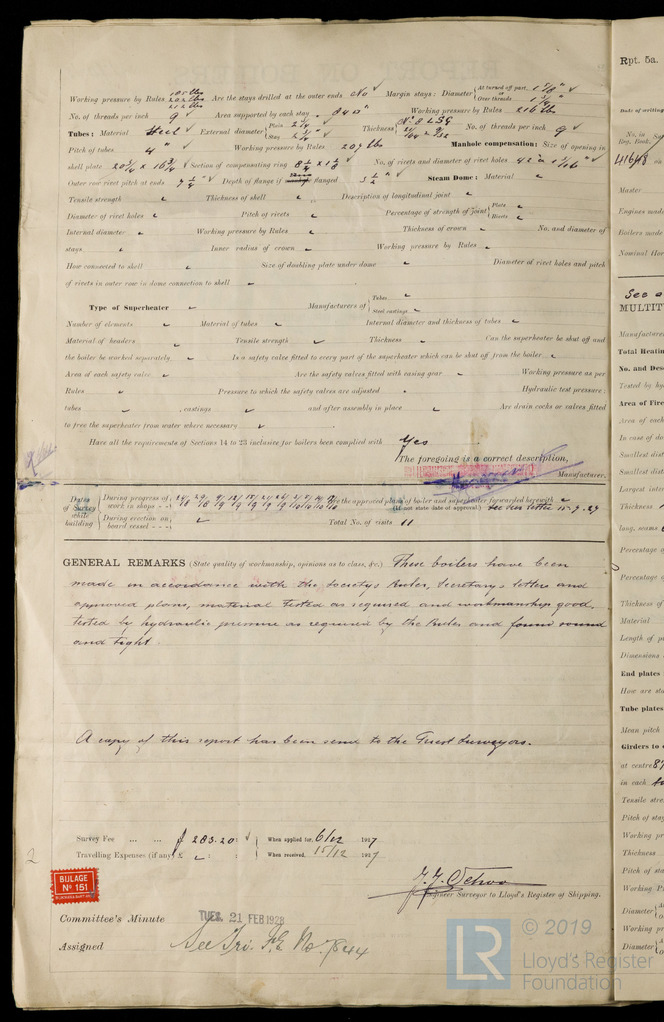 Working pressure by Rules 202 lbs Are the stays drilled at the outer ends No Margin stays: Diameter { At turned off part, 1 5/8" or Over threads 1 3/4"
No. of threads per inch 9 Area supported by each stay 840" Working pressure by Rules 216 lbs
Tubes: Material Steel External diameter { Plain 2 3/4" Stay 2 3/4" Thickness { No. of threads per inch 9
Pitch of tubes 4" Working pressure by Rules 207 lbs Manhole compensation: Size of opening in
shell plate 20 3/4 x 16 3/4 Section of compensating ring 8 1/4 x 1 No. of rivets and diameter of rivet holes 42 a 1 1/16"
Outer row rivet pitch at ends 7 1/4" Depth of flange if flanged 3 1/2" Steam Dome: Material
Tensile strength Thickness of shell Description of longitudinal joint
Diameter of rivet holes Pitch of rivets Percentage of strength of joint { Plate Rivets
Internal diameter Working pressure by Rules Thickness of crown No. and diameter of
stays. Inner radius of crown Working pressure by Rules
How connected to shell Size of doubling plate under dome Diameter of rivet holes and pitch
of rivets in outer row in dome connection to shell
Type of Superheater Manufacturers of { Tubes Steel castings
Number of elements Material of tubes Internal diameter and thickness of tubes
Material of headers Tensile strength Thickness Can the superheater be shut off and
the boiler be worked separately Is a safety valve fitted to every part of the superheater which can be shut off from the boiler
Area of each safety valve Are the safety valves fitted with easing gear Working pressure as per
Rules Pressure to which the safety valves are adjusted Hydraulic test pressure:
tubes castings and after assembly in place Are drain cocks or valves fitted
to free the superheater from water where necessary
Have all the requirements of Sections 14 to 23 inclusive for boilers been complied with Yes
The foregoing is a correct description,
Manufacturer.
Dates of Survey while building { During progress of work in shops - - Are the approved plans of boiler and superheater forwarded herewith
(If not state date of approval.) See Sec letter 15-9-27
During erection on board vessel - - - Total No. of visits 11
GENERAL REMARKS (State quality of workmanship, opinions as to class, &c.) These boilers have been
made in accordance with the Society's Rules, Secretary's letter and
approved plans, material tested as required and workmanship good,
tested by hydraulic pressure as required by the Rules and found sound
and tight.
A copy of this report has been send to the Triest Surveyors.
Survey Fee ... ... f 283.20 : When applied for, 6/12 1927
Travelling Expenses (if any) £ : : When received, 15/12 1927
Engineer Surveyor to Lloyd's Register of Shipping.
2
BIJLAGE
No 151
Committee's Minute TUES. 21 FEB 1928
Assigned See Tri. F.E. No. 7844
Rpt. 5a.
Date of writing
No. in Reg. Book.
41648 on
Master
Engines made
Boilers made
Nominal Hor
See a
MULTIT
Manufacture
Total Heati
No. and Des
Tested by hy
Area of Fire
Area of each
In case of do
Smallest dist
Smallest dist
Largest inter
Thickness
long. seams
Percentage o
Percentage o
Thickness of
Material
Length of p
Dimensions
End plates
How are sta
Tube plates
Mean pitch
Girders to
at centre 8
in each
Tensile stre
Pitch of stay
Working pr
Thickness
Pitch of stay
Working P
Diameter { A
Working pr
Diameter { A
LR © 2019
Lloyd's Register
Foundation